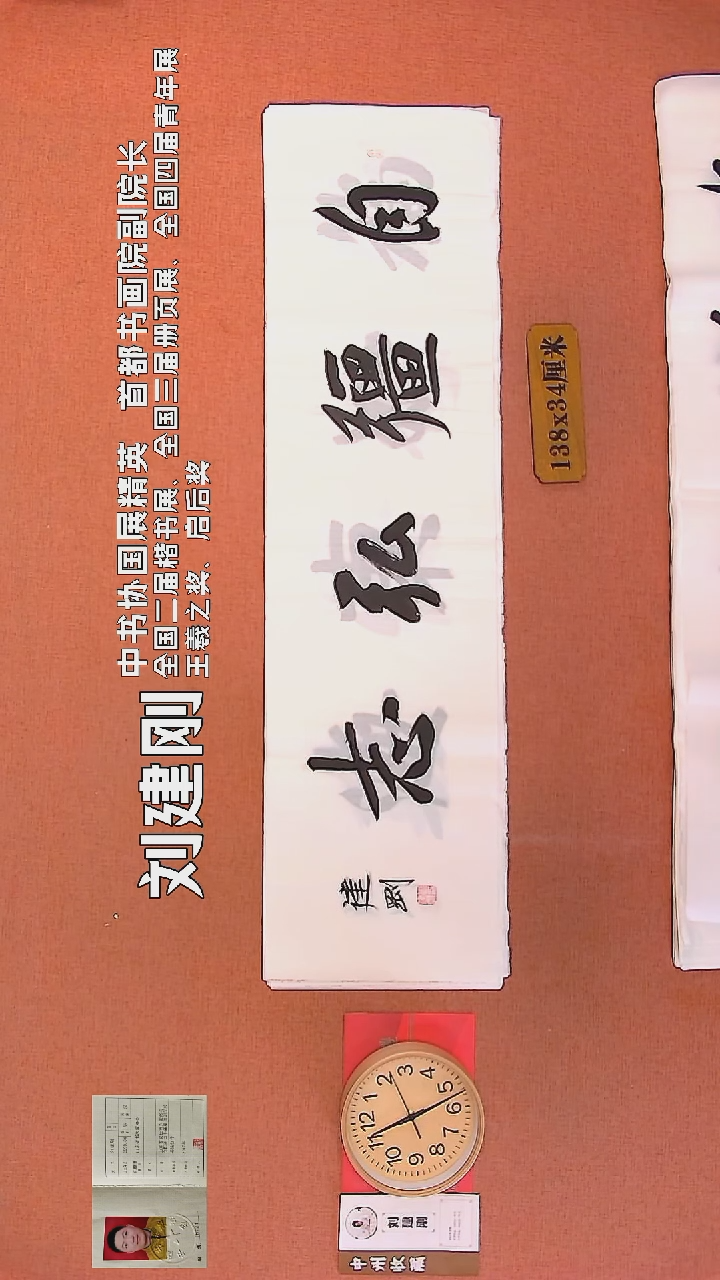 刘建刚
中书协国展精英 首都书画院副院长
全国二届楷书展、全国三届册页展、全国四届青年展
王羲之奖、启后奖
自彊弘志
建剛
138x34厘米
12 1 2 3 4 5 6 7 8 9 10 11
刘建刚
中州收藏